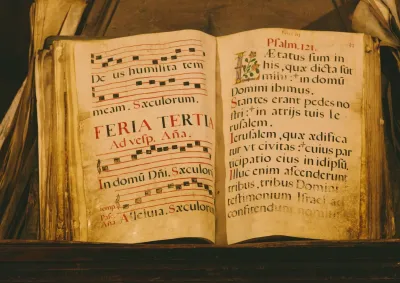 De us humilita tem
meam. Sæculorum.
FERIA TERTIA
Ad vesp̄. Aña.
In domū Dñi. Sæculorū
temp.
Pas.
Aña
Alleluia. Sæculorum
Psalm. 121.
Lætatus sum in
his, quæ dicta sūt
mihi: in domū
Domini ibimus.
Stantes erant pedes no
stri: in atrijs tuis Ie
rusalem.
Ierusalem, quæ ædifica
tur vt civitas: cuius par
ticipatio eius in idipsū.
Illuc enim ascenderunt
tribus, tribus Domini
testimonium Israel ad
confitendum nomini